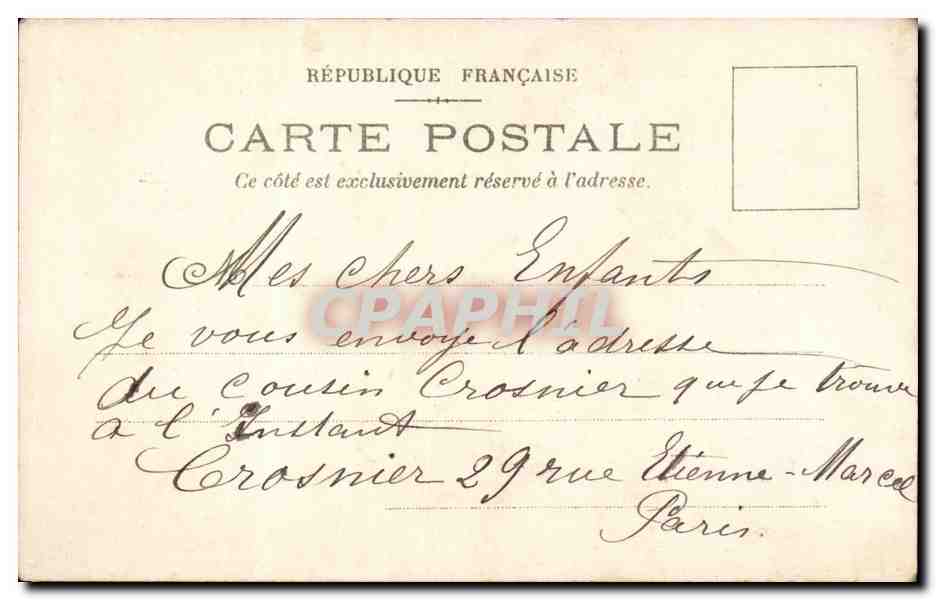 RÉPUBLIQUE FRANÇAISE
CARTE POSTALE
Ce côté est exclusivement réservé à l'adresse.
Mes chers Enfants
CPAPHIL
Je vous envoye l'adresse
du cousin Crosnier que je trouve
a l'Instant
Crosnier 29 rue Etienne-Marcel
Paris.